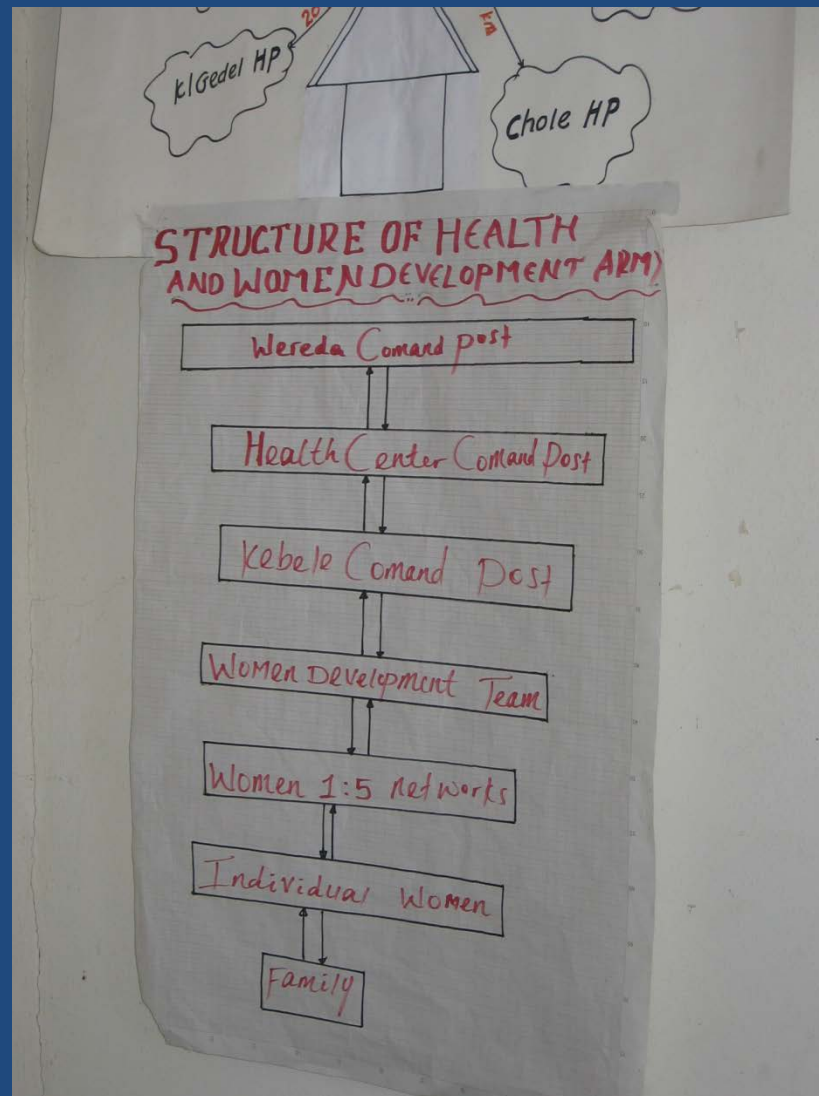 20
km
k/Gedel HP
Chole HP
STRUCTURE OF HEALTH
AND WOMEN DEVELOPMENT ARMY
Wereda Comand post
Health Center Comand Post
Kebele Comand Post
Women Development Team
Women 1:5 networks
Individual Women
Family